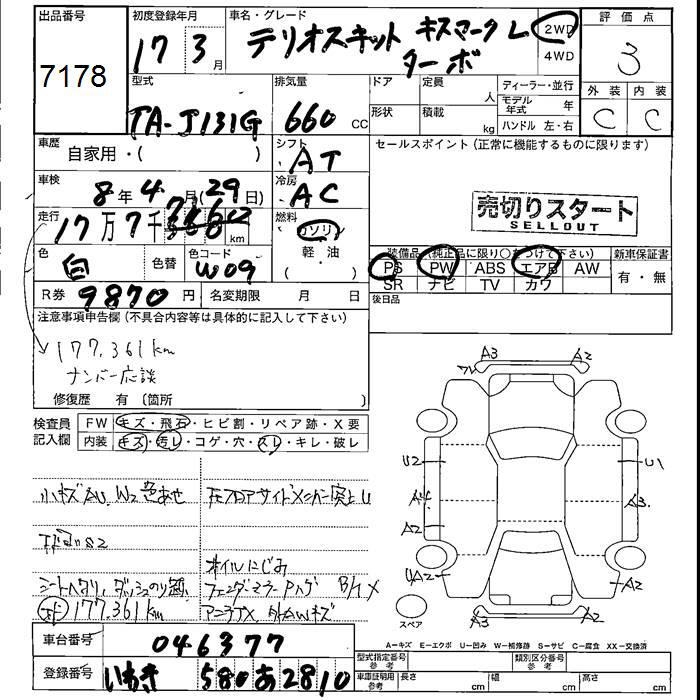 出品番号 初度登録年月 車名・グレード 評価点
7178 17年 3月 テリオスキット キスマークL ターボ 2WD 4WD 3
型式 排気量 ドア 定員 人 ディーラー・並行 外装 内装
TA-J131G 660 CC 形状 積載 kg モデル年式 年 ハンドル 左・右 C C
車歴 自家用・( ) シフト AT セールスポイント(正常に機能するものに限ります)
車検 8年 4月(29日) 冷房 AC
売切りスタート
SELLOUT
走行 17万7千 km 燃料 ガソリン 軽・油 ( )
色 白 色替 色コード W09
装備品(純正品に限り○をつけて下さい) 新車保証書
PS PW ABS エアB AW 有・無
SR ナビ TV カワ
R券 9870円 名変期限 月 日 後日品
注意事項申告欄(不具合内容等は具体的に記入して下さい)
177,361km
ナンバー応談
修復歴 有 〔箇所
検査員記入欄 FW キズ・飛石・ヒビ割・リペア跡・X要
内装 キズ・汚レ・コゲ・穴・スレ・キレ・破レ
A3 A2
U2 U1
A3
A2
UA2 A2
スペア
A3 A2
小キズAU、W2色あせ
下廻りS2
オイルにじみ
シートヘタリ、ダッシュのり跡
177,361km
A-キズ E-エクボ U-凹み W-補修跡 S-サビ C-腐食 XX-交換済
車台番号 046377 型式指定番号 参考 類別区分番号 参考
登録番号 いわき 580 あ 2810 車庫証明用 参考 長さ cm 幅 cm 高さ cm